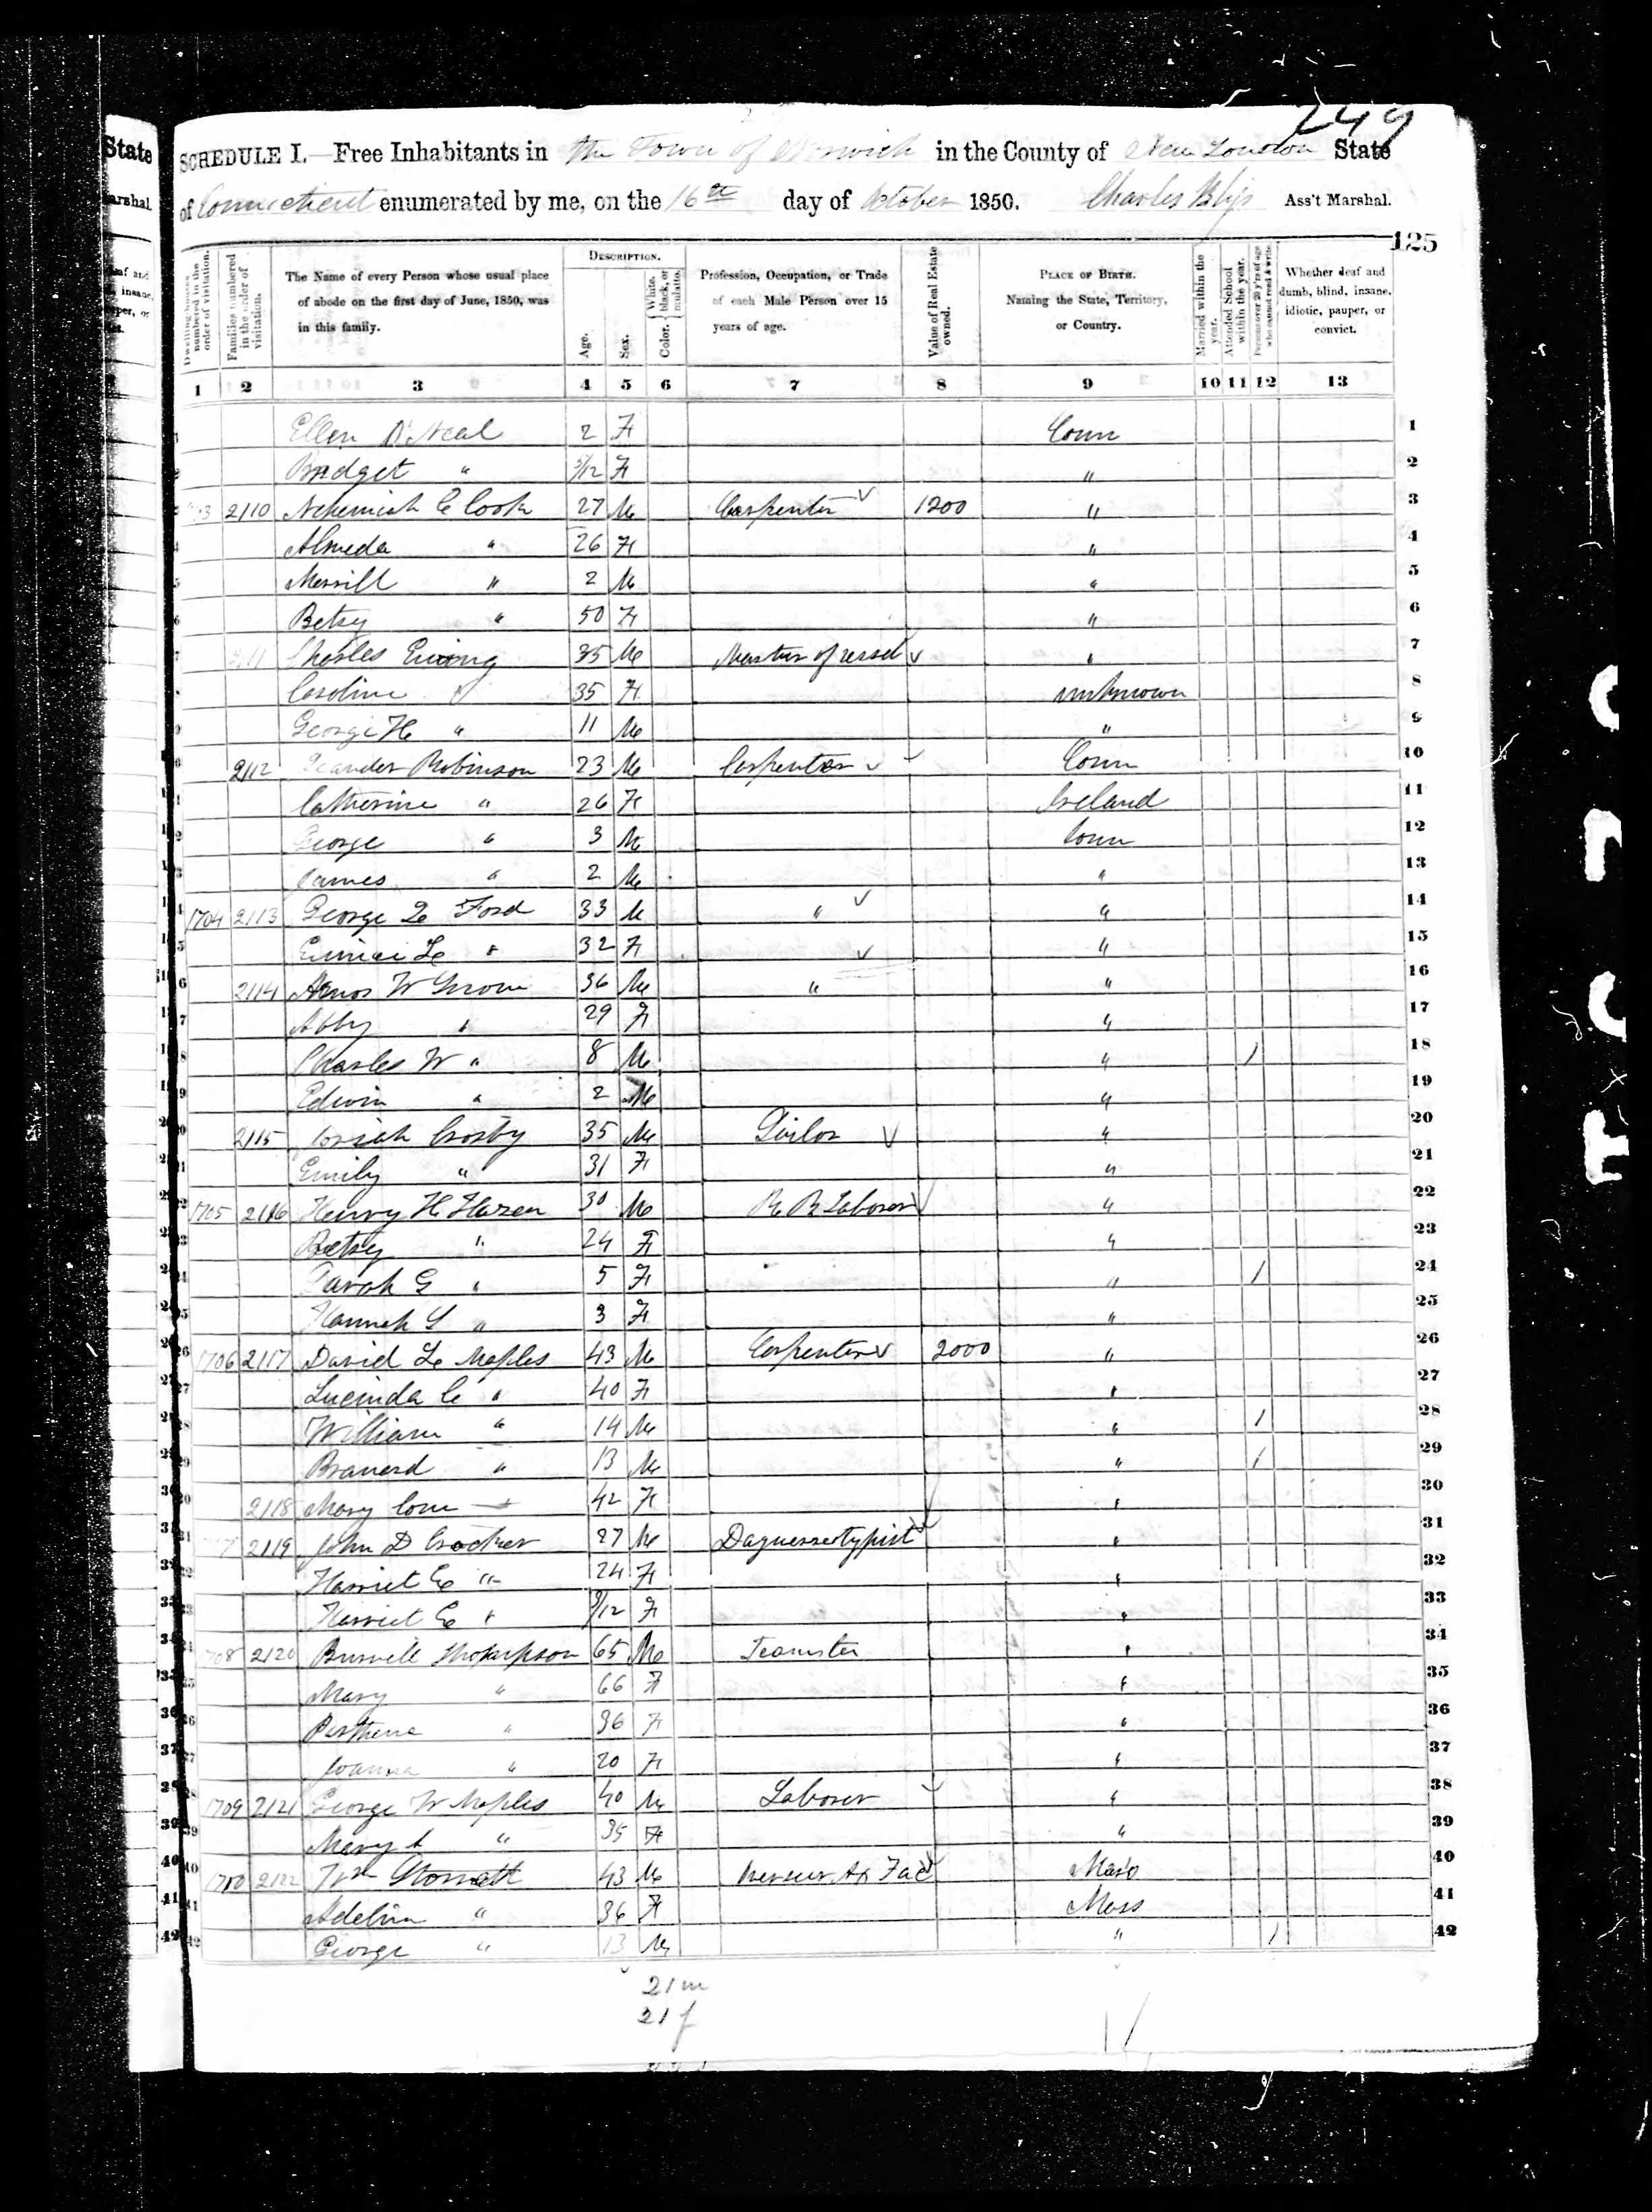 249
SCHEDULE I.—Free Inhabitants in the Town of Norwich in the County of New London State
of Connecticut enumerated by me, on the 16th day of October 1850. Charles Ass't Marshal.
125
Dwelling-houses numbered in the order of visitation.
Families numbered in the order of visitation.
The Name of every Person whose usual place of abode on the first day of June, 1850, was in this family.
DESCRIPTION.
Age.
Sex.
Color. { White, black, or mulatto.
Profession, Occupation, or Trade of each Male Person over 15 years of age.
Value of Real Estate owned.
PLACE OF BIRTH. Naming the State, Territory, or Country.
Married within the year.
Attended School within the year.
Persons over 20 y'rs of age who cannot read & write.
Whether deaf and dumb, blind, insane, idiotic, pauper, or convict.
1 2 3 4 5 6 7 8 9 10 11 12 13
Ellen O'Neal 2 F Conn 1
Bridget " 5/12 F " 2
2110 Nehemiah C Cook 27 M Carpenter 1200 " 3
Almeda " 26 F " 4
Merrill " 2 M " 5
Betsy " 50 F " 6
2111 Charles Ewing 35 M Master of vessel " 7
Caroline " 35 F unknown 8
George H " 11 M " 9
2112 Leander Robinson 23 M Carpenter Conn 10
Catherine " 26 F Ireland 11
George " 3 M Conn 12
James " 2 M " 13
1704 2113 George Ford 33 M " " 14
" 32 F " 15
2114 Amos W 36 M " " 16
Abby " 29 F " 17
Charles W " 8 M " / 18
Edwin " 2 M " 19
2115 Josiah Crosby 35 M Tailor " 20
Emily " 31 F " 21
1705 2116 Henry H Hazen 30 M R R Laborer " 22
Betsy " 24 F " 23
Sarah G " 5 F " / 24
Hannah " 3 F " 25
1706 2117 David L Maples 43 M Carpenter 2000 " 26
Lucinda C " 40 F " 27
William " 14 M " / 28
Branerd " 13 M " / 29
2118 Mary 42 F " 30
2119 John D Crocker 27 M Daguerreotypist " 31
Harriet E " 24 F " 32
Harriet E " 9/12 F " 33
1708 2120 Thompson 65 M Teamster " 34
Mary " 66 F " 35
" 36 F " 36
Joanna " 20 F " 37
1709 2121 George W Maples 40 M Laborer " 38
Mary A " 35 F " 39
2122 Wm 43 M Mass 40
Adeline " 36 F Mass 41
George " 13 M " / 42
21 m
21 f